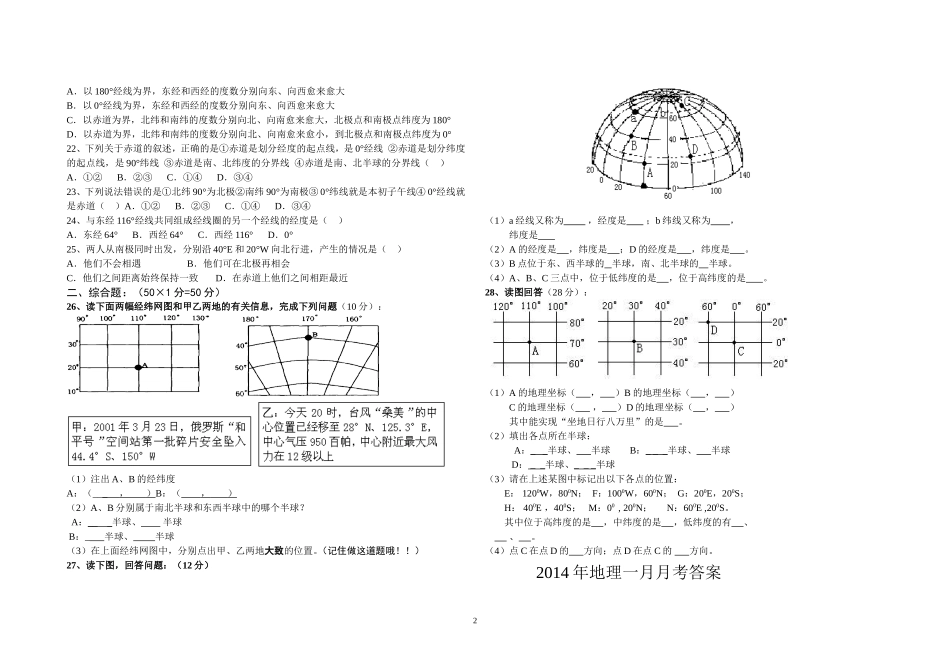 A．以 180°经线为界，东经和西经的度数分别向东、向西愈来愈大
B．以 0°经线为界，东经和西经的度数分别向东、向西愈来愈大
C．以赤道为界，北纬和南纬的度数分别向北、向南愈来愈大，北极点和南极点纬度为 180°
D．以赤道为界，北纬和南纬的度数分别向北、向南愈来愈小，到北极点和南极点纬度为 0°
22、下列关于赤道的叙述，正确的是①赤道是划分经度的起点线，是 0°经线 ②赤道是划分纬度
的起点线，是 90°纬线 ③赤道是南、北纬度的分界线 ④赤道是南、北半球的分界线（ ）
A．①② B．②③ C．①④ D．③④
23、下列说法错误的是①北纬 90°为北极②南纬 90°为南极③ 0°纬线就是本初子午线④ 0°经线就
是赤道（ ）A．①② B．②③ C．①④ D．③④
24、与东经 116°经线共同组成经线圈的另一个经线的经度是（ ）
A．东经 64° B．西经 64° C．西经 116° D．0°
25、两人从南极同时出发，分别沿 40°E 和 20°W 向北行进，产生的情况是（ ）
A．他们不会相遇 B．他们可在北极再相会
C．他们之间距离始终保持一致 D．在赤道上他们之间相距最近
二、综合题：（50×1 分=50 分）
26、读下面两幅经纬网图和甲乙两地的有关信息，完成下列问题（10 分）：
90° 100° 110° 120° 130°
30°
20° A
10°
180° 170° 160°
B
40°
50°
60°
甲：2001 年 3 月 23 日，俄罗斯“和
平号 ”空间站第一批碎片安全坠入
44.4°S、150°W
乙：今天 20 时，台风“桑美 ”的中
心位置己经移至 28°N、125.3°E，
中心气压 950 百帕，中心附近最大风
力在 12 级以上
（1）注出 A、B 的经纬度
A：（____，____）B：（____，____）
（2）A、B 分别属于南北半球和东西半球中的哪个半球？
A：____半球、____ 半球
B：____半球、____半球
（3）在上面经纬网图中，分别点出甲、乙两地大致的位置。（记住做这道题哦！！）
27、读下图，回答问题：（12 分）
a b C
60
B 40 D
20 A
20 0 20 60 100 140
0
（1）a 经线又称为____ ，经度是___ ；b 纬线又称为____，
纬度是____
（2）A 的经度是___，纬度是___；D 的经度是___，纬度是___。
（3）B 点位于东、西半球的__半球，南、北半球的__半球。
（4）A、B、C 三点中，位于低纬度的是___，位于高纬度的是___。
28、读图回答（28 分）：
120° 110° 100°
80°
70°
60°
A
20° 30° 40°
20°
30°
40°
B
60° 0° 60°
D
20°
0°
20°
C
（1）A 的地理坐标（___，___）B 的地理坐标（___，___）
C 的地理坐标（___ ，___）D 的地理坐标（___，___）
其中能实现“坐地日行八万里”的是___。
（2）填出各点所在半球：
A：____半球、___半球 B：____半球、___半球
D：____半球、____半球
（3）请在上述某图中标记出以下各点的位置：
E： 120⁰W，80⁰N； F：100⁰W，60⁰N； G：20⁰E，20⁰S；
H： 40⁰E ，40⁰S； M：0⁰ , 20⁰N； N：60⁰E ,20⁰S。
其中位于高纬度的是___，中纬度的是___，低纬度的有___、
___ 、___。
（4）点 C 在点 D 的___方向；点 D 在点 C 的 ___方向。
2014 年地理一月月考答案
2